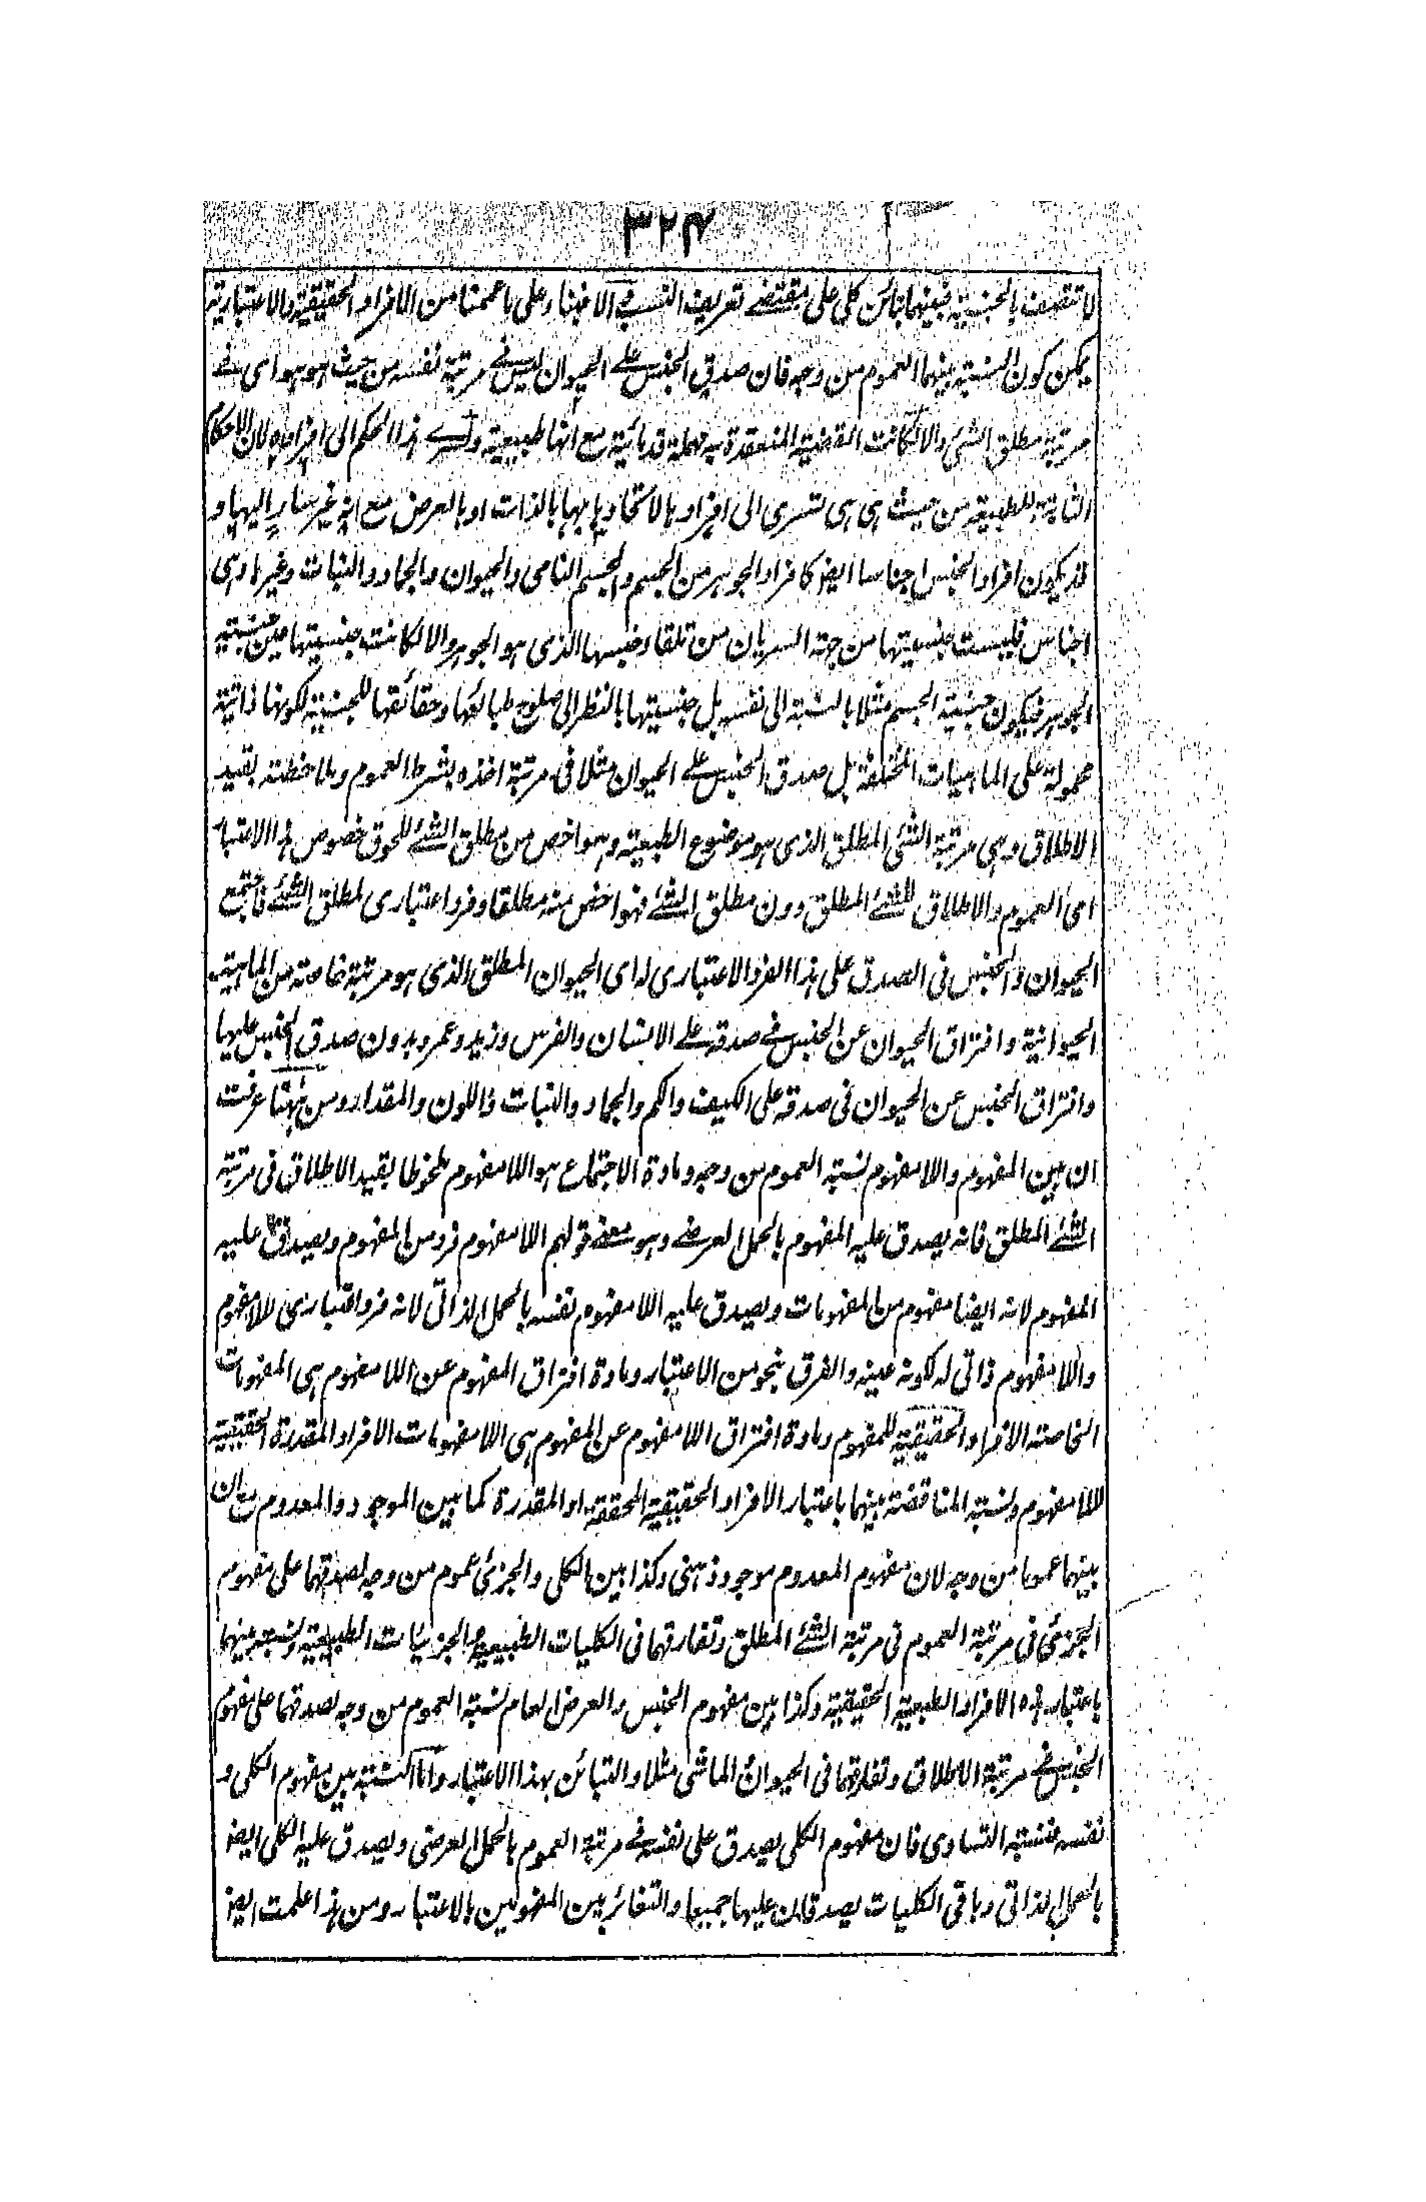 ۳۲۴
لا تتصف بالجنسية فبينهما تبائن كلي على مقتضى تعريف النسب في الاغبناء وعلى ما عممنا من الافراد الحقيقية والاعتبارية
يمكن كون النسبة بينهما العموم من وجه فان صدق الجنس على الحيوان ليس في مرتبة نفسه من حيث هو هو اى فى
مرتبة مطلق الشئ والا لكانت القضية المنعقدة به مهملة قدمائية مع انها طبيعية ولسرى هذا الحكم الى افراده لان الاحكام
الثابتة للطبيعة من حيث هى هى تسرى الى افرادها لاتحادها بها بالذات او بالعرض مع انه غير سار اليها و
قد يكون افراد الجنس اجناسا ايضا كافراد الجوهر من الجسم والجسم النامى والحيوان والجماد والنبات وغيرها وهى
اجناس فليست جنسيتها من جهة السريان من تلقاء جنسها الذى هو الجوهر والا لكانت جنسيتها عين جنسية
الجوهر فيكون جنسية الجسم مثلا بالنسبة الى نفسه بل جنسيتها بالنظر الى صلوح طبائعها وحقائقها للجنسية لكونها ذاتية
محمولة على الماهيات المختلفة بل صدق الجنس على الحيوان مثلا فى مرتبة اخذه بشرط العموم وملاحظته بقيد
الاطلاق وهى مرتبة الشئ المطلق الذى هو موضوع الطبعية وهو اخص من مطلق الشئ للحوق خصوص هذا الاعتبار
اى العموم والاطلاق للشئ المطلق دون مطلق الشئ فهو اخص منه مطلقا وفرد اعتبارى لمطلق الشئ فاجتمع
الحيوان والجنس فى الصدق على هذا الفرد الاعتبارى له اى الحيوان المطلق الذى هو مرتبة خاصة من الماهية
الحيوانية وافتراق الحيوان عن الجنس فى صدقه على الانسان والفرس وزيد وعمرو بدون صدق الجنس عليها
وافتراق الجنس عن الحيوان فى صدقه على الكيف والكم والجماد والنبات واللون والمقدار ومن ههنا عرفت
ان بين المفهوم واللا مفهوم نسبة العموم من وجه ومادة الاجتماع هو اللا مفهوم ملحوظا بقيد الاطلاق فى مرتبة
الشئ المطلق فانه يصدق عليه المفهوم بالحمل العرضى وهو معنى قولهم اللا مفهوم فرد من المفهوم ويصدق عليه
المفهوم لانه ايضا مفهوم من المفهومات ويصدق عليه اللا مفهوم نفسه بالحمل الذاتى لانه فرد اعتبارى للا مفهوم
واللا مفهوم ذاتى له لكونه عينه والفرق بنحو من الاعتبار ومادة افتراق المفهوم عن اللا مفهوم هى المفهومات
الخاصة الافراد الحقيقية للمفهوم ومادة افتراق اللا مفهوم عن المفهوم هى اللا مفهومات الافراد المقدرة الحقيقية
للا مفهوم ونسبة المناقضة بينهما باعتبار الافراد الحقيقية المحققة او المقدرة كما بين الموجود والمعدوم مع ان
بينهما عموما من وجه لان مفهوم المعدوم موجود ذهنى وكذا بين الكلى والجزئى عموم من وجه لصدقهما على مفهوم
الجزئى فى مرتبة العموم فى مرتبة الشئ المطلق وتفارقهما فى الكليات الطبيعية والجزئيات الطبيعية ولنسبة بينهما
باعتبار هذه الافراد الطبعية الحقيقية وكذا بين مفهوم الجنس والعرض العام نسبة العموم من وجه لصدقهما على مفهوم
الجنس فى مرتبة الاطلاق وتفارقهما فى الحيوان الماشى مثلا والتبائن بهذا الاعتبار واما النسبة بين مفهوم الكلى و
نفسه فنسبة التساوى فان مفهوم الكلى يصدق على نفسه فى مرتبة العموم بالحمل العرضى ويصدق عليه الكلى ايضا
بالحمل الذاتى وباقى الكليات يصدقان عليها جميعا والتغائر بين المفهومين بالاعتبار ومن هذا علمت ايضا